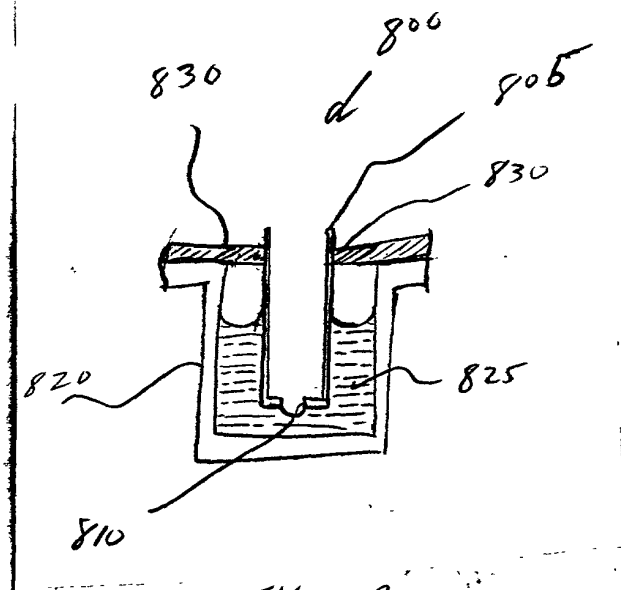 800
830
805
830
820
825
810